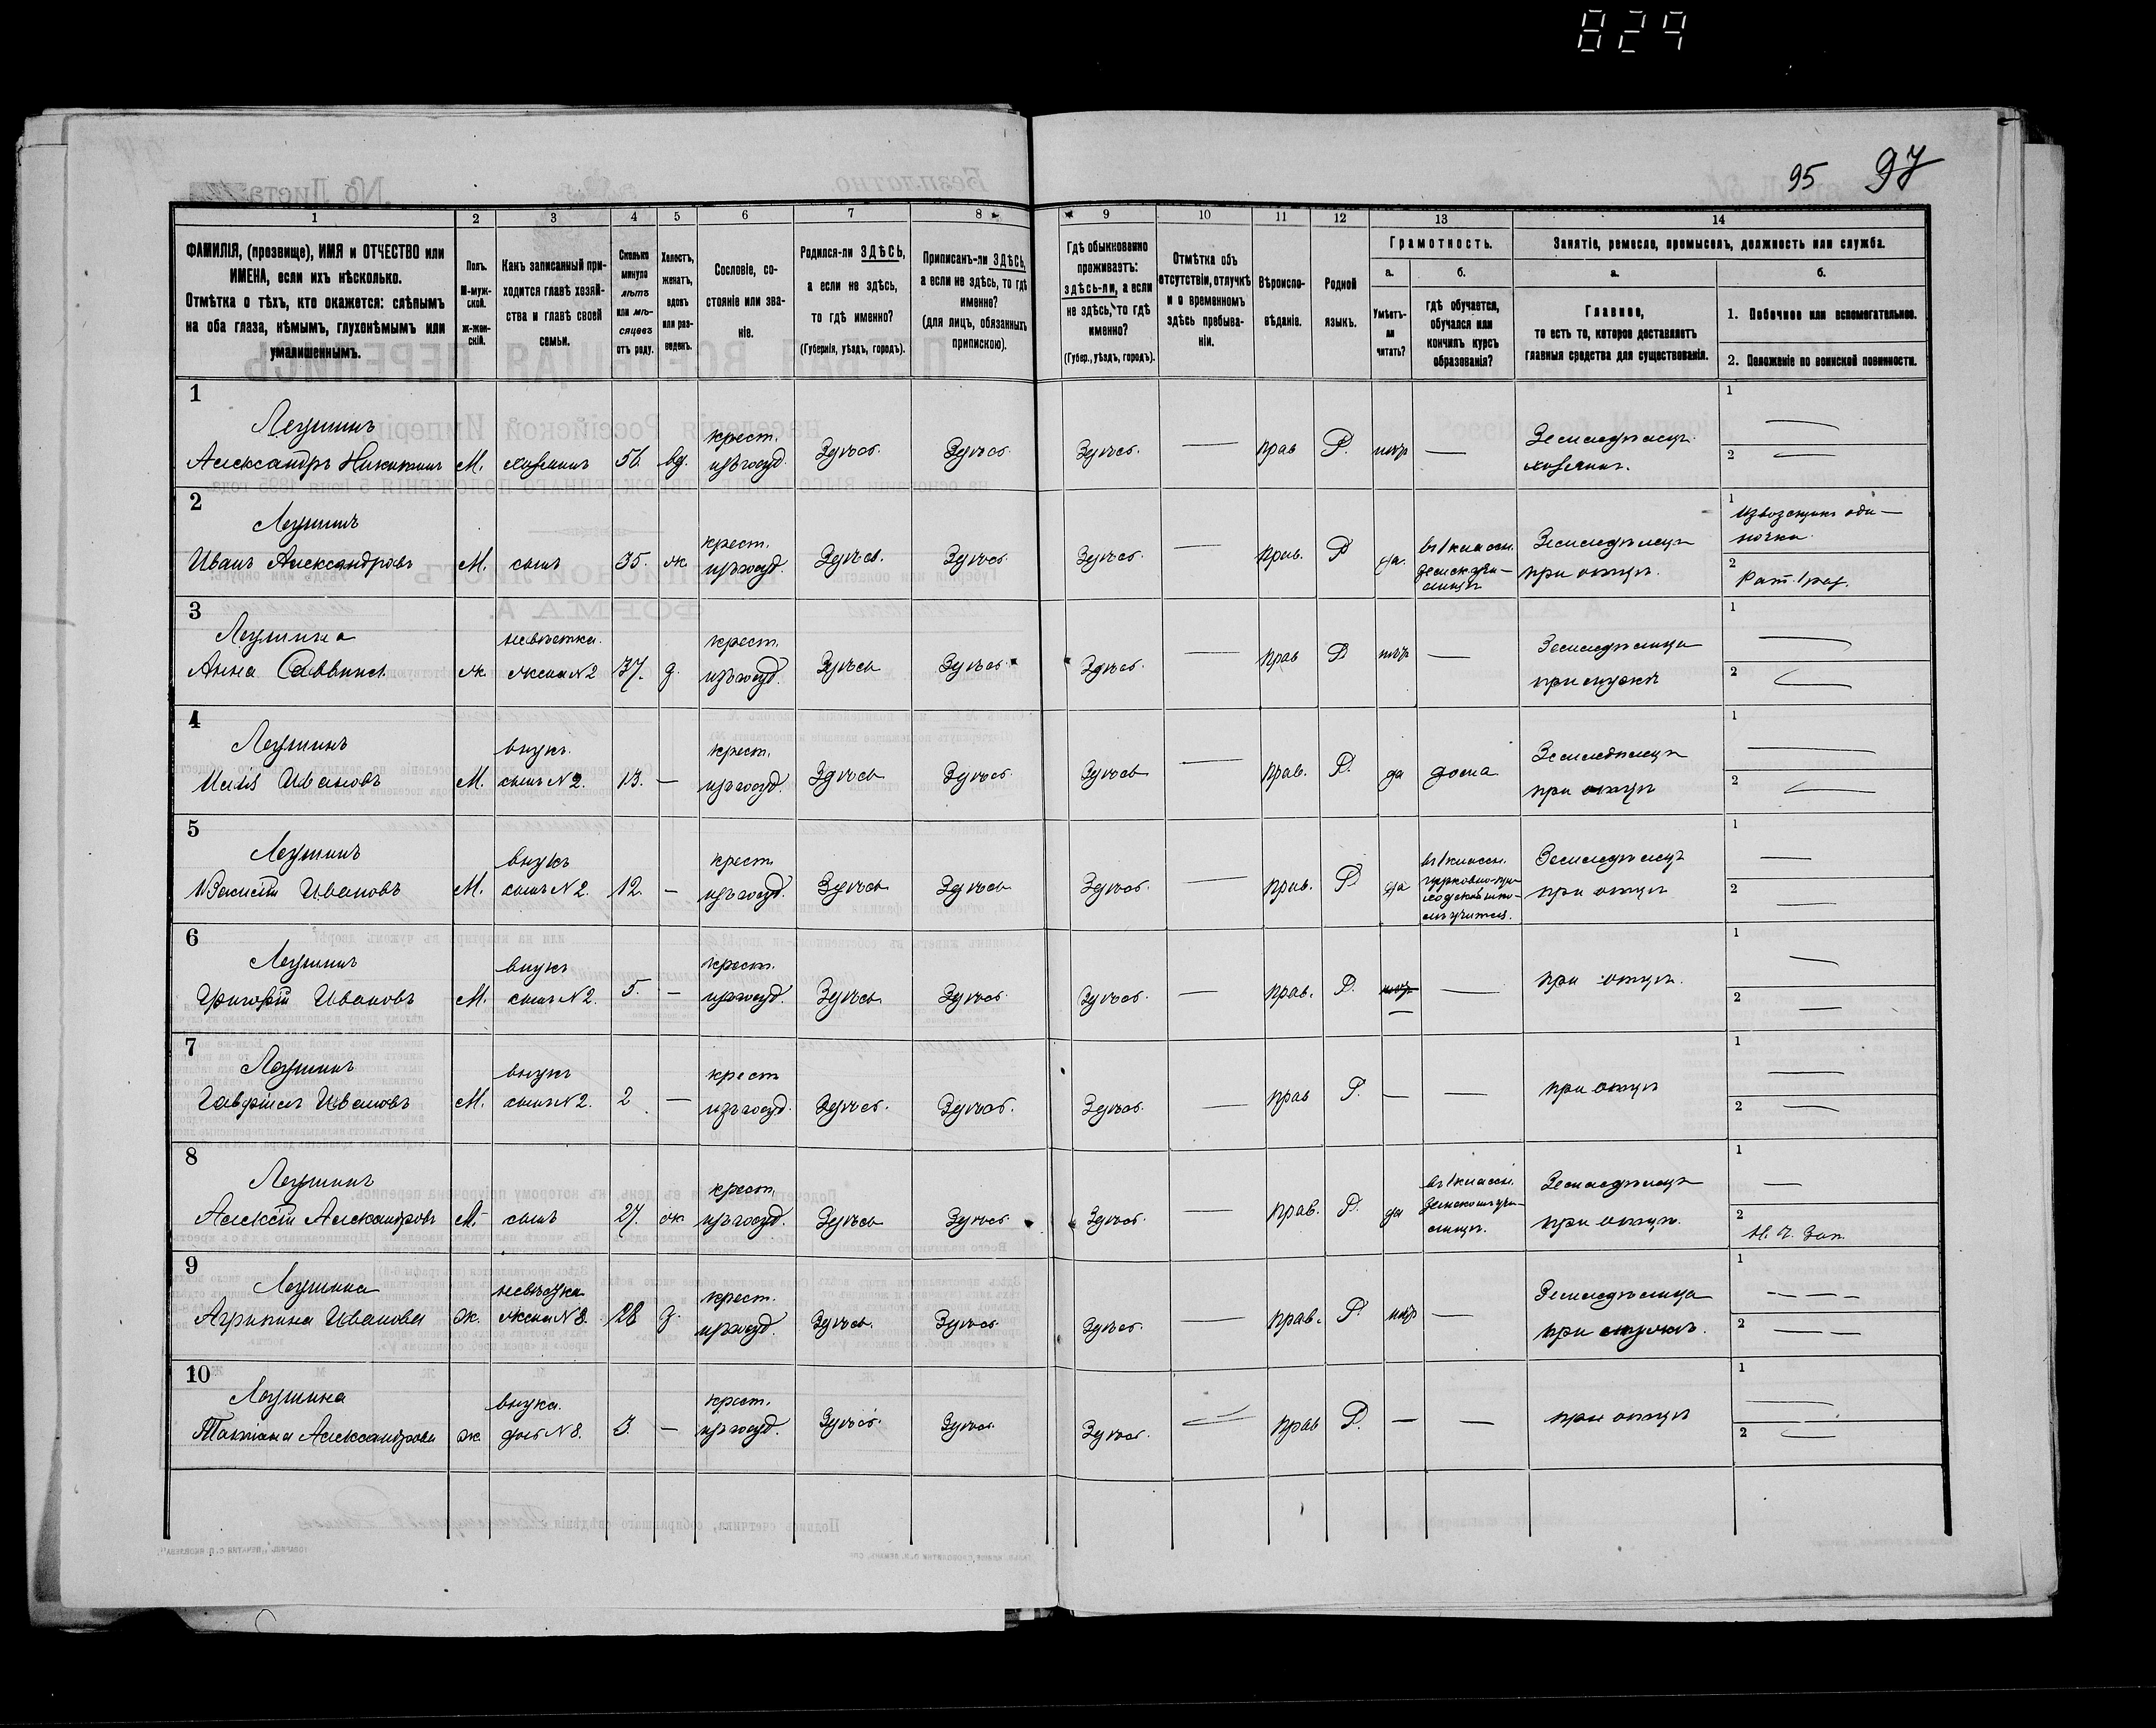 829
95 97
1 2 3 4 5 6 7 8 9 10 11 12 13 14
ФАМИЛІЯ, (прозвище), ИМЯ и ОТЧЕСТВО или ИМЕНА, если ихъ нѣсколько.
Отмѣтка о тѣхъ, кто окажется: слѣпымъ на оба глаза, нѣмымъ, глухонѣмымъ или умалишеннымъ.
Полъ. М-мужской. Ж-женскій.
Какъ записанный приходится главѣ хозяйства и главѣ своей семьи.
Сколько минуло лѣтъ или мѣсяцевъ отъ роду.
Холостъ, женатъ, вдовъ или разведенъ.
Сословіе, состояніе или званіе.
Родился-ли ЗДѢСЬ, а если не здѣсь, то гдѣ именно?
(Губернія, уѣздъ, городъ).
Приписанъ-ли ЗДѢСЬ, а если не здѣсь, то гдѣ именно?
(для лицъ, обязанныхъ припискою).
Гдѣ обыкновенно проживаетъ: здѣсь-ли, а если не здѣсь, то гдѣ именно?
(Губер., уѣздъ, городъ).
Отмѣтка объ отсутствіи, отлучкѣ и о временномъ здѣсь пребываніи.
Вѣроисповѣданіе.
Родной языкъ.
Грамотность.
а. Умѣетъ-ли читать?
б. гдѣ обучается, обучался или кончилъ курсъ образованія?
Занятіе, ремесло, промыселъ, должность или служба.
а. Главное, то есть то, которое доставляетъ главныя средства для существованія.
б. 1. Побочное или вспомогательное.
2. Положеніе по воинской повинности.
1 крест. 1
Александръ Никитинъ М. хозяинъ 56. вд. изъ госуд. Здѣсь. Здѣсь. Здѣсь. — прав Р. нѣтъ — Земледѣлецъ хозяинъ. 2
2 крест. 1 Извозчикъ оди—
Иванъ Александровъ М. сынъ 35. ж. изъ госуд. Здѣсь. Здѣсь. Здѣсь. — прав. Р да. въ 1 классн. Земледѣлецъ при отцѣ. 2 Рат. 1 раз.
3 невѣстка. крест. 1
Анна Саввина ж. жена №2 37. з. изъ госуд. Здѣсь Здѣсь. Здѣсь. — прав Р нѣтъ — Земледѣлица при мужѣ 2
4 внукъ. крест. 1
Ивановъ М. сынъ №2. 13. — изъ госуд. Здѣсь Здѣсь. Здѣсь — прав. Р. да дома Земледѣлецъ при отцѣ 2
5 внукъ крест. 1
Василій Ивановъ М. сынъ №2. 12. — изъ госуд. Здѣсь Здѣсь Здѣсь. — прав. Р да въ 1 классн. церковно-приходской школѣ учится. Земледѣлецъ при отцѣ 2
6 внукъ крест. 1
Григорій Ивановъ М. сынъ №2. 5. — изъ госуд. Здѣсь Здѣсь. Здѣсь. — прав. Р. — — при отцѣ. 2
7 внукъ крест 1
Гавріилъ Ивановъ М. сынъ №2. 2 — изъ госуд. Здѣсь. Здѣсь. Здѣсь. — прав Р. — — при отцѣ 2
8 крест. 1
Алексѣй Александровъ М. сынъ 27. ж. изъ госуд. Здѣсь Здѣсь. Здѣсь. — прав. Р. да въ 1 классн. Земледѣлецъ при отцѣ. 2
9 невѣстка крест. 1
Агрипина Иванова ж. жена №8. 28 з. изъ госуд. Здѣсь. Здѣсь. Здѣсь. — прав. Р. нѣтъ — Земледѣлица при 2
10 внука. крест. 1
Татіана ж. дочь №8. 3. — изъ госуд. Здѣсь. Здѣсь. Здѣсь. — прав Р. — — при отцѣ 2